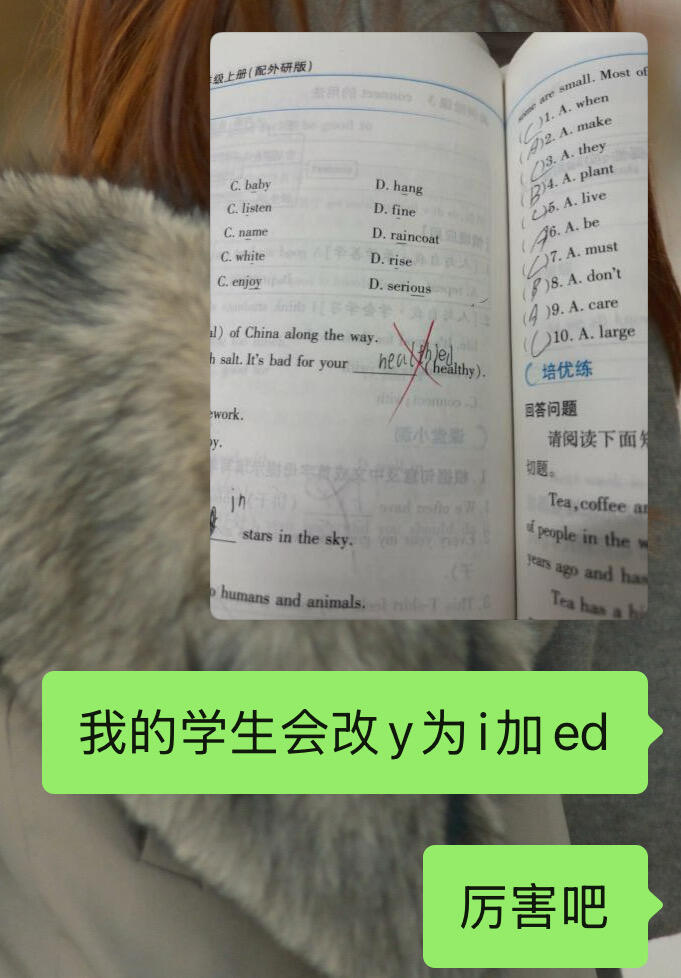 级上册(配外研版)
C. baby D. hang
C. listen D. fine
C. name D. raincoat
C. white D. rise
C. enjoy D. serious
of China along the way.
salt. It's bad for your (healthy).
stars in the sky.
humans and animals.
are small. Most of
(C)1. A. when
(A)2. A. make
(C)3. A. they
(B)4. A. plant
(C)5. A. live
(A)6. A. be
(C)7. A. must
(B)8. A. don't
(A)9. A. care
(C)10. A. large
培优练
回答问题
请阅读下面
切题。
Tea, coffee
of people in the
years ago and
Tea has a
我的学生会改y为i加ed
厉害吧